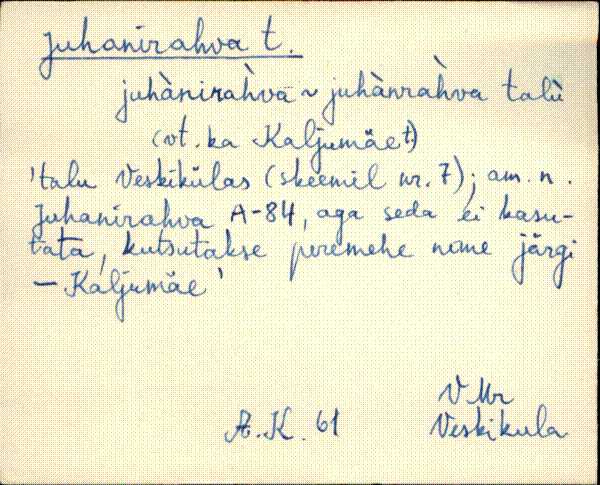 Juhanirahva t.
juhàniràhva ~ juhànràhva talù
(vt. ka Kaljumäe t.)
'talu Veskikülas (skeemil nr. 7); am. n.
Juhanirahva A-84, aga seda ei kasu-
tata, kutsutakse peremehe nime järgi
— Kaljumäe'
V Mr
A.K. 61 Veskikula